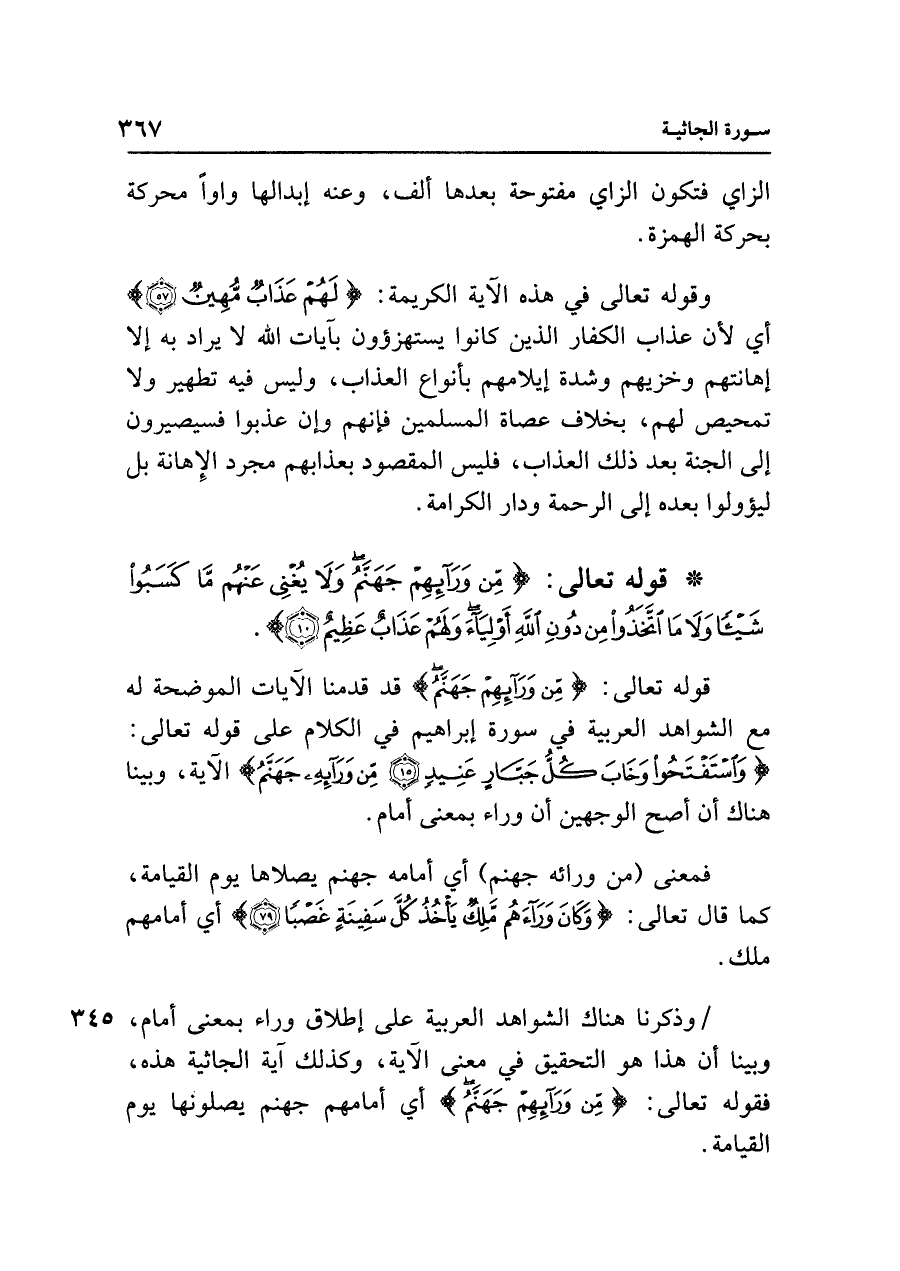 سورة الجاثية ٣٦٧
الزاي فتكون الزاي مفتوحة بعدها ألف، وعنه إبدالها واواً محركة
بحركة الهمزة.
وقوله تعالى في هذه الآية الكريمة: ﴿ لَهُمْ عَذَابٌ مُّهِينٌ ۝٥٧﴾
أي لأن عذاب الكفار الذين كانوا يستهزؤون بآيات الله لا يراد به إلا
إهانتهم وخزيهم وشدة إيلامهم بأنواع العذاب، وليس فيه تطهير ولا
تمحيص لهم، بخلاف عصاة المسلمين فإنهم وإن عذبوا فسيصيرون
إلى الجنة بعد ذلك العذاب، فليس المقصود بعذابهم مجرد الإهانة بل
ليؤولوا بعده إلى الرحمة ودار الكرامة.
* قوله تعالى: ﴿ مِّن وَرَآئِهِمْ جَهَنَّمُۖ وَلَا يُغْنِى عَنْهُم مَّا كَسَبُوا۟
شَيْـًٔا وَلَا مَا ٱتَّخَذُوا۟ مِن دُونِ ٱللَّهِ أَوْلِيَآءَۖ وَلَهُمْ عَذَابٌ عَظِيمٌ ۝١٠﴾.
قوله تعالى: ﴿ مِّن وَرَآئِهِمْ جَهَنَّمُۖ﴾ قد قدمنا الآيات الموضحة له
مع الشواهد العربية في سورة إبراهيم في الكلام على قوله تعالى:
﴿ وَٱسْتَفْتَحُوا۟ وَخَابَ كُلُّ جَبَّارٍ عَنِيدٍ ۝١٥ مِّن وَرَآئِهِۦ جَهَنَّمُ﴾ الآية، وبينا
هناك أن أصح الوجهين أن وراء بمعنى أمام.
فمعنى (من ورائه جهنم) أي أمامه جهنم يصلاها يوم القيامة،
كما قال تعالى: ﴿ وَكَانَ وَرَآءَهُم مَّلِكٌ يَأْخُذُ كُلَّ سَفِينَةٍ غَصْبًا ۝٧٩﴾ أي أمامهم
ملك.
/ وذكرنا هناك الشواهد العربية على إطلاق وراء بمعنى أمام، ٣٤٥
وبينا أن هذا هو التحقيق في معنى الآية، وكذلك آية الجاثية هذه،
فقوله تعالى: ﴿ مِّن وَرَآئِهِمْ جَهَنَّمُۖ ﴾ أي أمامهم جهنم يصلونها يوم
القيامة.